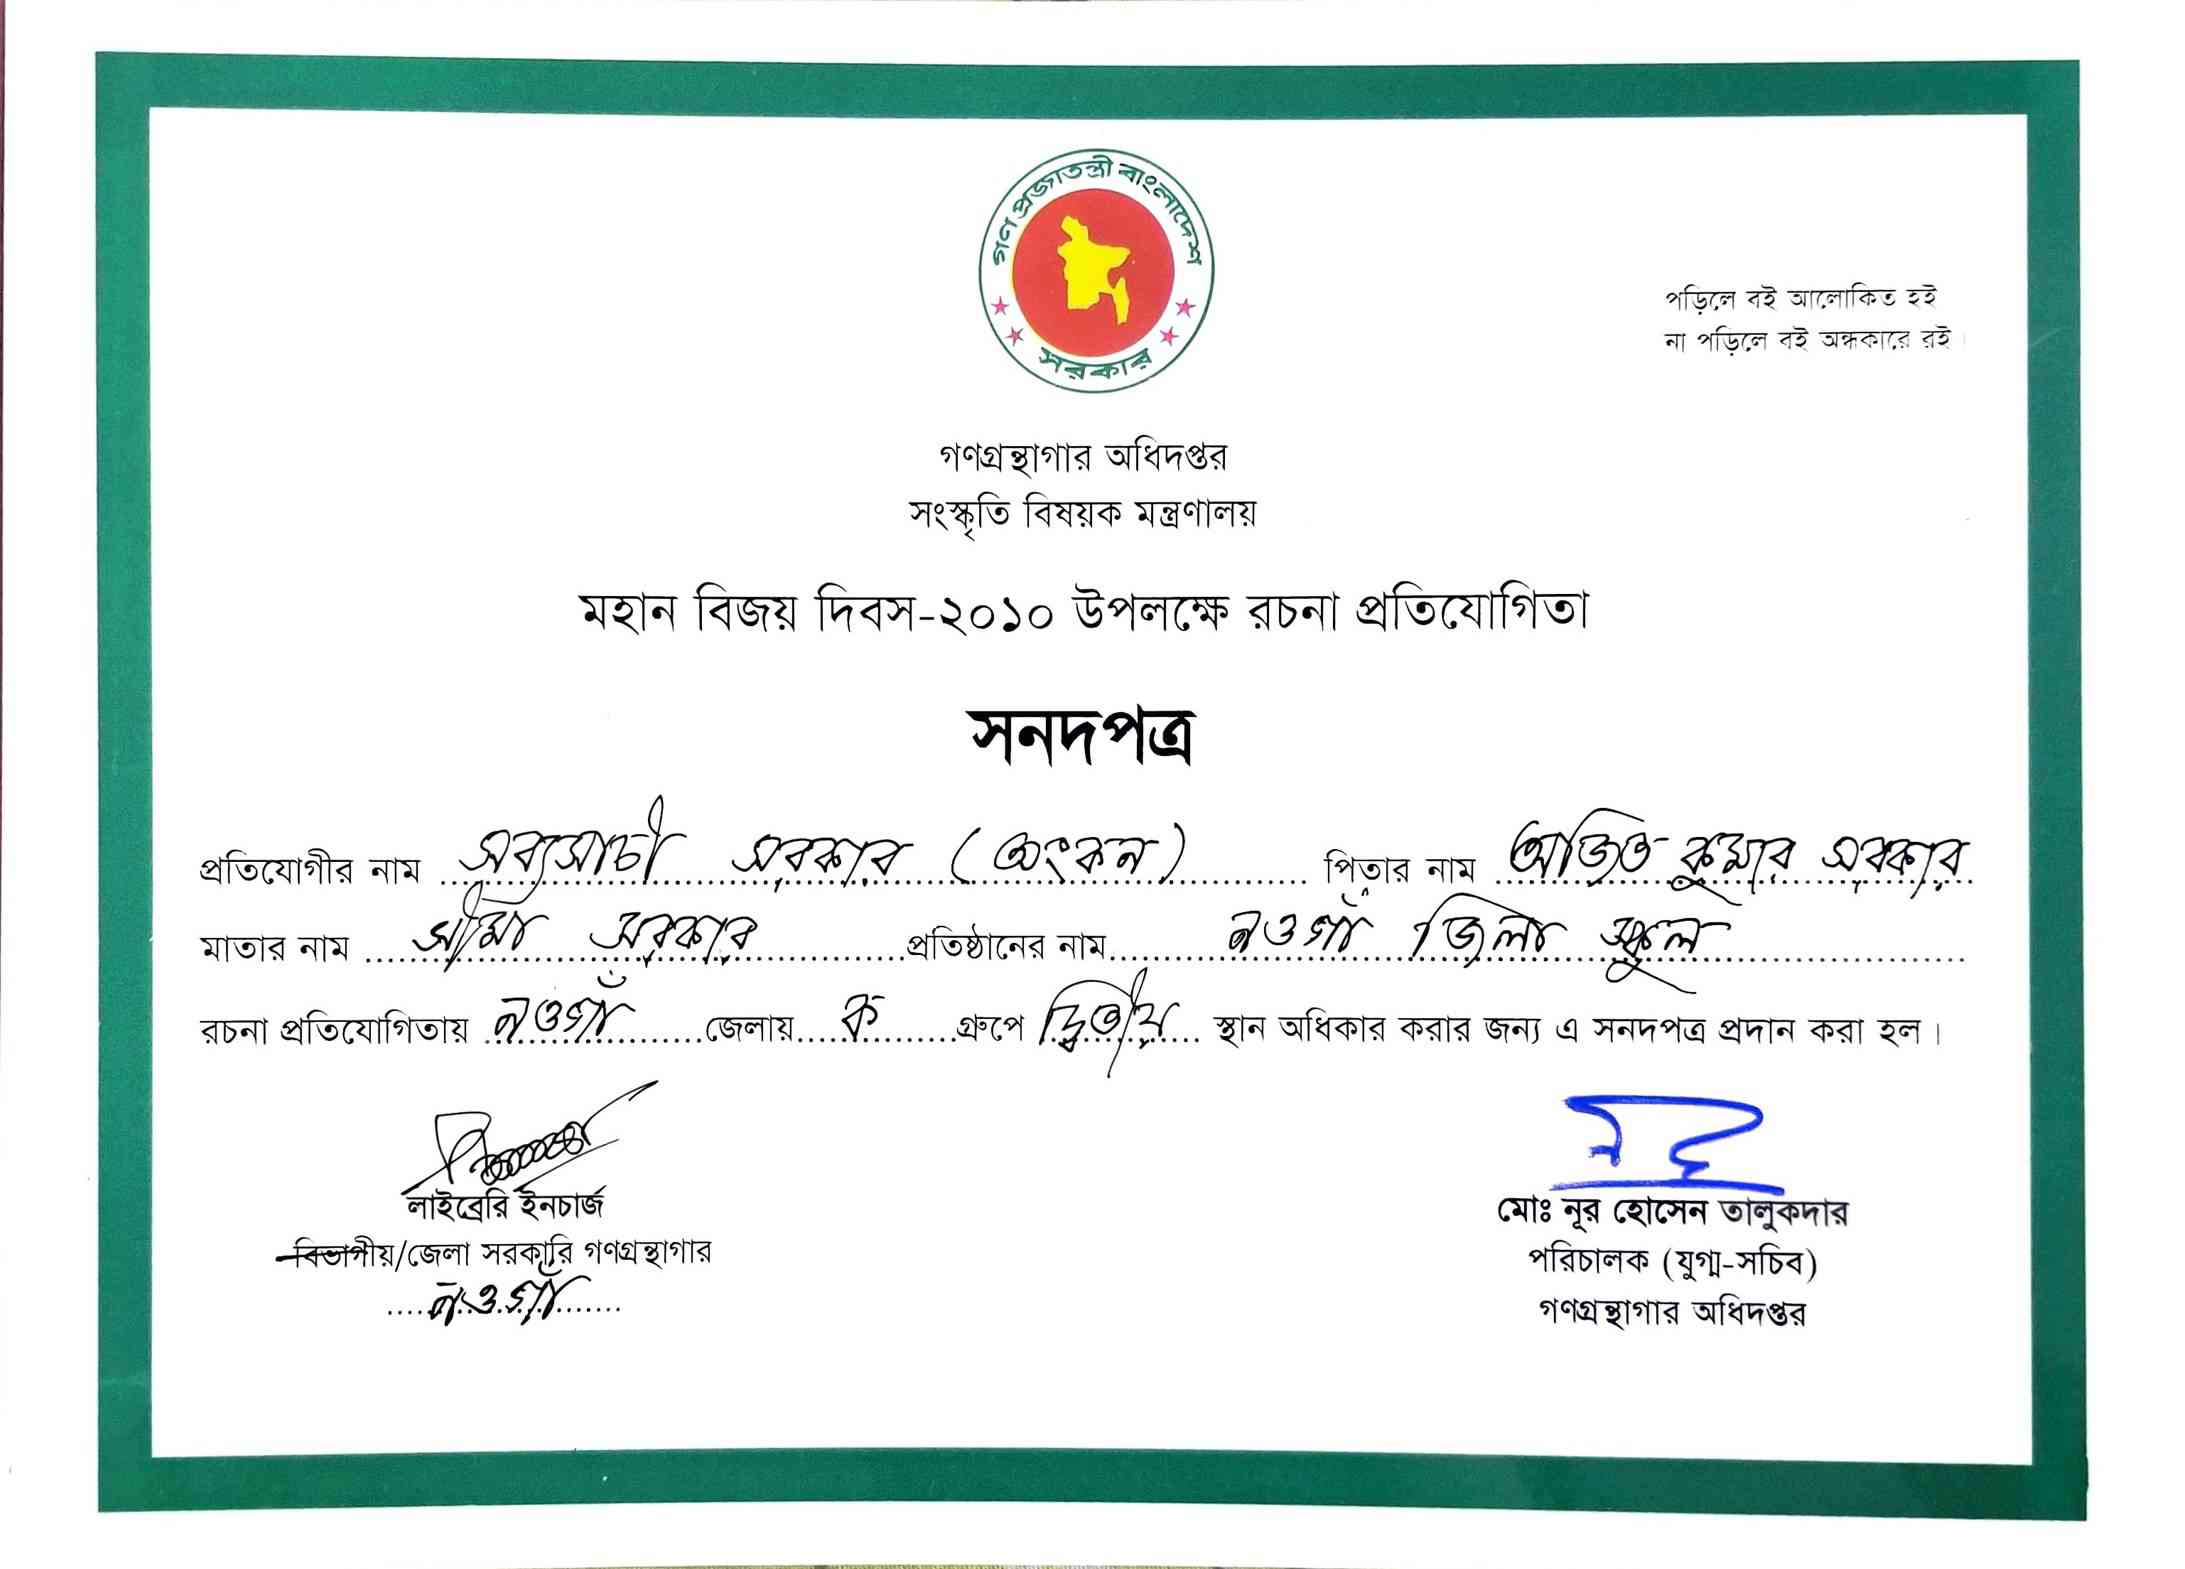 গণ প্রজাতন্ত্রী বাংলাদেশ
সরকার
পড়িলে বই আলোকিত হই
না পড়িলে বই অন্ধকারে রই।
গণগ্রন্থাগার অধিদপ্তর
সংস্কৃতি বিষয়ক মন্ত্রণালয়
মহান বিজয় দিবস-২০১০ উপলক্ষে রচনা প্রতিযোগিতা
সনদপত্র
প্রতিযোগীর নাম সব্যসাচী সরকার (অংকন) পিতার নাম অজিত কুমার সরকার
মাতার নাম সীমা সরকার প্রতিষ্ঠানের নাম নওগাঁ জিলা স্কুল
রচনা প্রতিযোগিতায় নওগাঁ জেলায় ক গ্রুপে দ্বিতীয় স্থান অধিকার করার জন্য এ সনদপত্র প্রদান করা হল।
লাইব্রেরি ইনচার্জ
বিভাগীয়/জেলা সরকারি গণগ্রন্থাগার
নওগাঁ
মোঃ নূর হোসেন তালুকদার
পরিচালক (যুগ্ম-সচিব)
গণগ্রন্থাগার অধিদপ্তর